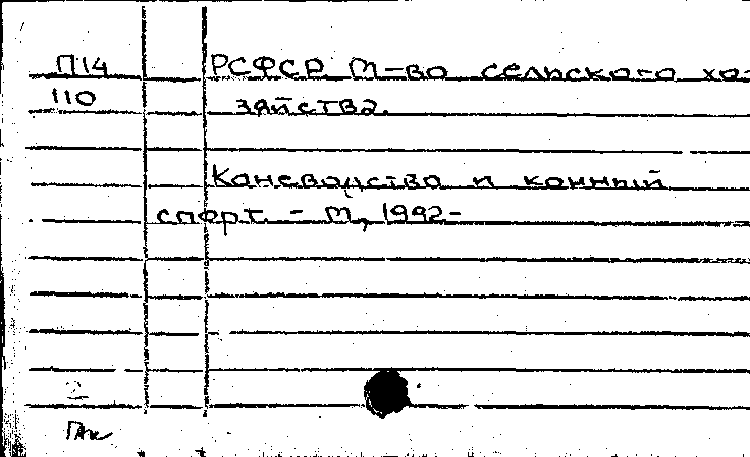 П14 РСФСР М-во сельского хо-
110 зяйства.
Коневодство и конный
спорт. - М, 1992-
2